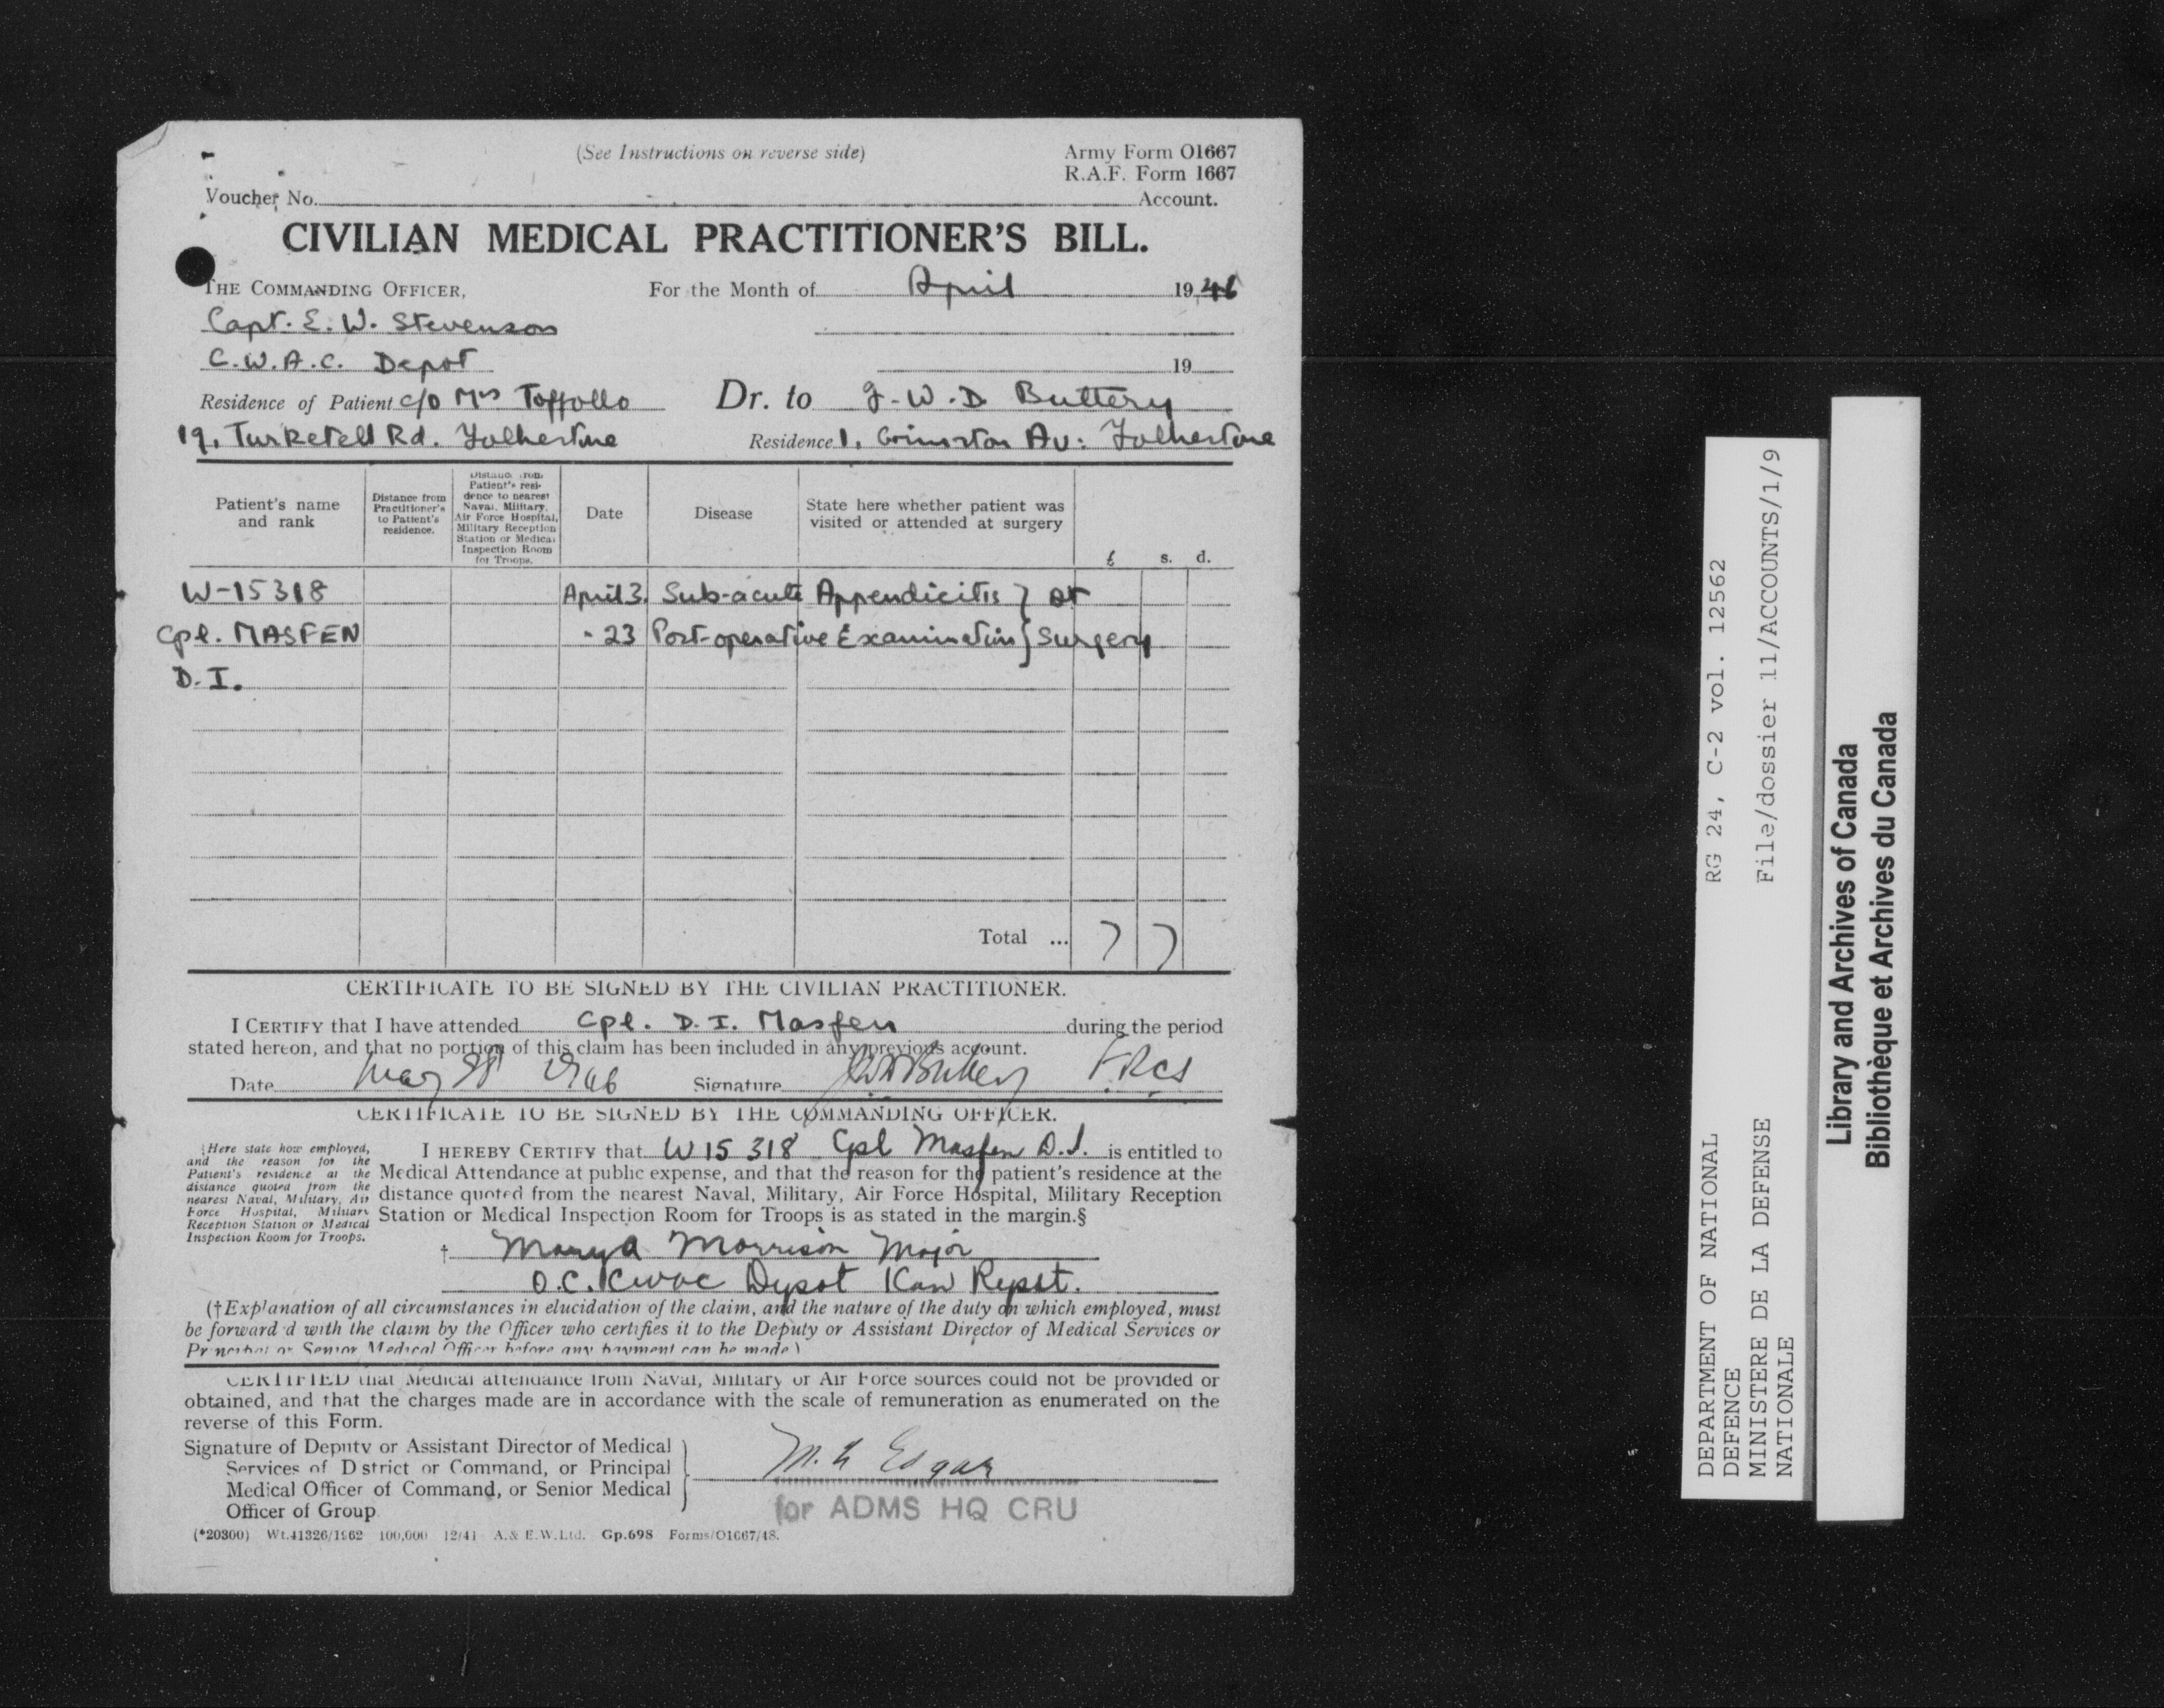 (See Instructions on reverse side)
Army Form O1667
R.A.F. Form 1667
Voucher No. Account.
CIVILIAN MEDICAL PRACTITIONER'S BILL.
THE COMMANDING OFFICER, For the Month of April 1946
Capt. E. W. Stevenson
C.W.A.C. Depot 19
Residence of Patient c/o Mrs Toffollo Dr. to J. W. D Buttery
19, Turketell Rd. Folkestone Residence 1, Grimston Av: Folkestone
Patient's name and rank
Distance from Practitioner's to Patient's residence.
Distance from Patient's residence to nearest Naval, Military, Air Force Hospital, Military Reception Station or Medical Inspection Room for Troops.
Date
Disease
State here whether patient was visited or attended at surgery
£ s. d.
W-15318 April 3. Sub-acute Appendicitis } at
Cpl. MASFEN " 23 Post-operative Examination } Surgery
D. I.
Total ... 7 7
CERTIFICATE TO BE SIGNED BY THE CIVILIAN PRACTITIONER.
I CERTIFY that I have attended Cpl. D. I. Masfen during the period
stated hereon, and that no portion of this claim has been included in any previous account.
Date May 1946 Signature Buttery F.R.C.S
CERTIFICATE TO BE SIGNED BY THE COMMANDING OFFICER.
§Here state how employed, and the reason for the Patient's residence at the distance quoted from the nearest Naval, Military, Air Force Hospital, Military Reception Station or Medical Inspection Room for Troops.
I HEREBY CERTIFY that W 15 318 Cpl Masfen D.I. is entitled to
Medical Attendance at public expense, and that the reason for the patient's residence at the
distance quoted from the nearest Naval, Military, Air Force Hospital, Military Reception
Station or Medical Inspection Room for Troops is as stated in the margin.§
† Mary A Morrison Major
O.C. Cwac Depot Can Repat.
(†Explanation of all circumstances in elucidation of the claim, and the nature of the duty on which employed, must
be forward d with the claim by the Officer who certifies it to the Deputy or Assistant Director of Medical Services or
Principal or Senior Medical Officer before any payment can be made)
CERTIFIED that Medical attendance from Naval, Military or Air Force sources could not be provided or
obtained, and that the charges made are in accordance with the scale of remuneration as enumerated on the
reverse of this Form.
Signature of Deputy or Assistant Director of Medical
Services of District or Command, or Principal
Medical Officer of Command, or Senior Medical
Officer of Group
M. H Edgar
for ADMS HQ CRU
(*20300) Wt.41326/1962 100,000 12/41 A.& E.W.Ltd. Gp.698 Forms/O1667/48.
DEPARTMENT OF NATIONAL RG 24, C-2 vol. 12562
DEFENCE
MINISTERE DE LA DEFENSE File/dossier 11/ACCOUNTS/1/9
NATIONALE
Library and Archives of Canada
Bibliothèque et Archives du Canada